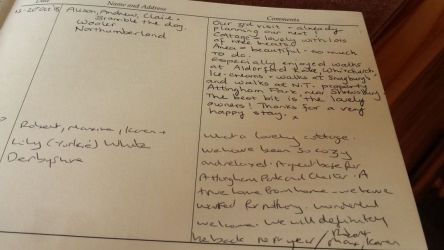 Date Name and Address Comments
Alison, Andrew, Claire +
Bramble the dog.
Wooler
Northumberland
Our 3rd visit - already
planning our next
Cottage = lovely with lots
of nice treats!
Area = beautiful - so much
to do.
Especially enjoyed walks
at Alderford Lake, Whitchurch,
Ice-creams + walks at
and walks at N.T. property
Attingham Park, near Shrewsbury
The best bit is the lovely
owners! Thanks for a very
happy stay. x
Robert, Maxine, Karen +
Lily (Yorkie) White
Derbyshire
What a lovely cottage.
We have been so cozy
and relaxed. A great base for
Attingham Park and Chester. A
true home from home - we have
wanted for nothing. Wonderful
welcome. We will definitely
be back next year / Robert
Max, Karen